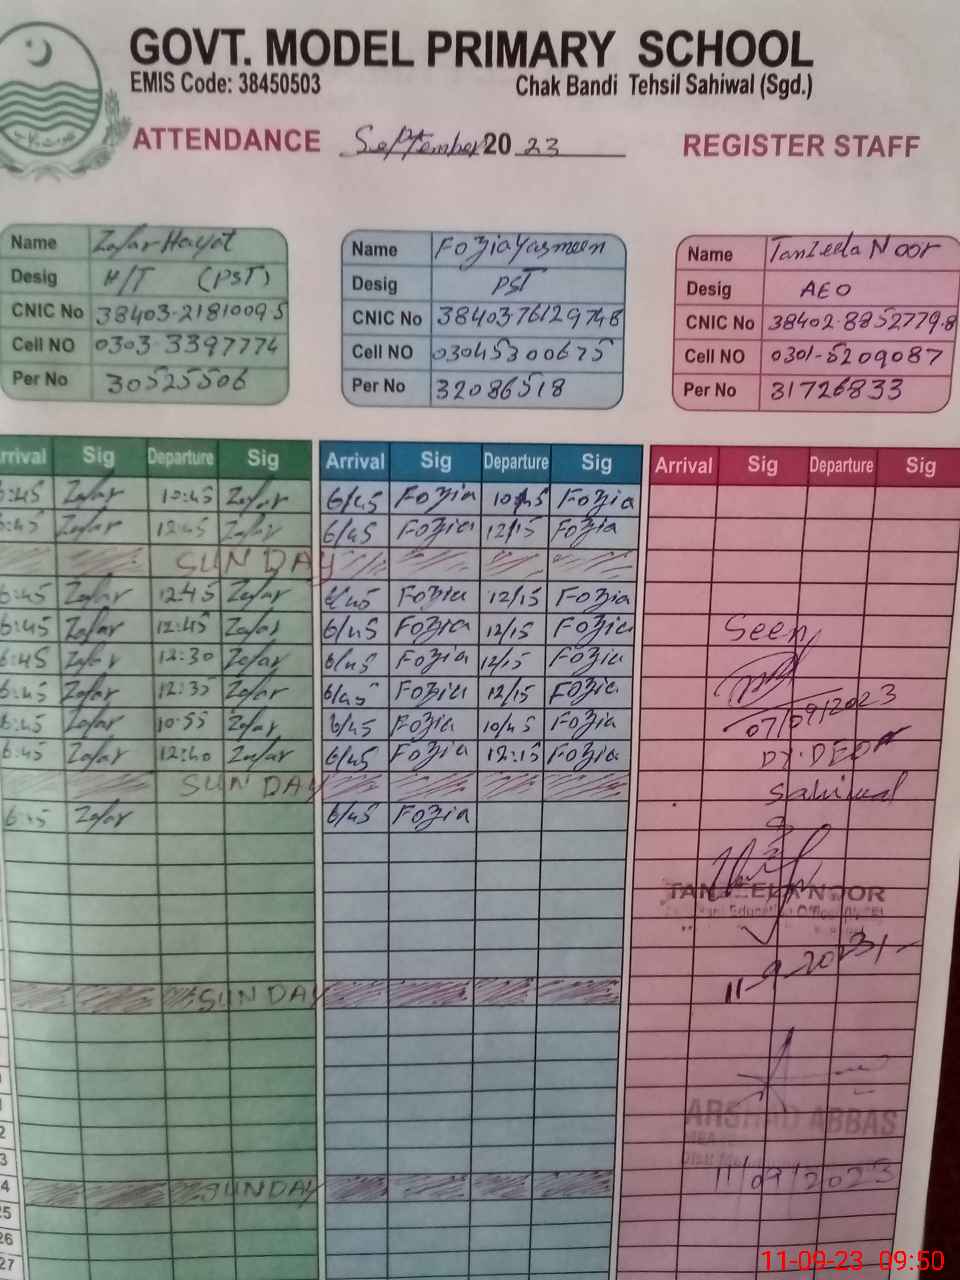 GOVT. MODEL PRIMARY SCHOOL
EMIS Code: 38450503 Chak Bandi Tehsil Sahiwal (Sgd.)
ATTENDANCE September 2023 REGISTER STAFF
Name Zafar Hayat
Desig H/T (PST)
CNIC No 38403-21810095
Cell NO 0303-3397774
Per No 30525506
Name Fozia Yasmeen
Desig PST
CNIC No 3840376129748
Cell NO 03045300675
Per No 32086518
Name Tanzeela Noor
Desig AEO
CNIC No 38402-8852779-8
Cell NO 0301-5209087
Per No 31726833
rrival Sig Departure Sig Arrival Sig Departure Sig Arrival Sig Departure Sig
6:45 Zafar 10:45 Zafar 6/45 Fozia 10/45 Fozia
6:45 Zafar 12:45 Zafar 6/45 Fozia 12/15 Fozia
SUNDAY
6:45 Zafar 12:45 Zafar 6/45 Fozia 12/15 Fozia
6:45 Zafar 12:45 Zafar 6/45 Fozia 12/15 Fozia Seen
6:45 Zafar 12:30 Zafar 6/45 Fozia 12/15 Fozia
6:45 Zafar 12:35 Zafar 6/45 Fozia 12/15 Fozia
6:45 Zafar 10:55 Zafar 6/45 Fozia 10/45 Fozia 07/09/2023
6:45 Zafar 12:40 Zafar 6/45 Fozia 12:15 Fozia DY.DEO
SUNDAY Sahiwal
6:45 Zafar 6/45 Fozia
TANZEELA NOOR
11-9-2023
SUNDAY
ARSHAD ABBAS
11/09/2023
2
3
4 SUNDAY
25
26
27
11-09-23 09:50